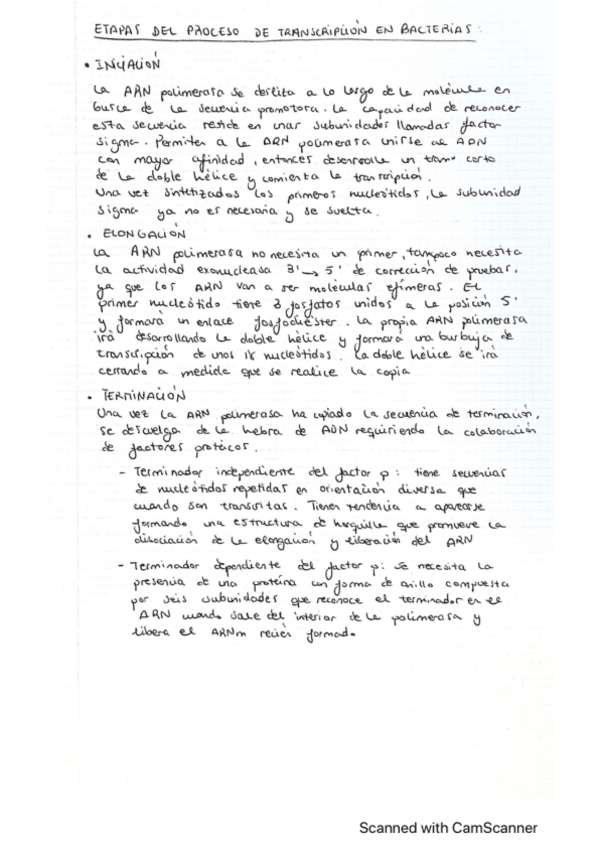 ETAPAS DEL PROCESO DE TRANSCRIPCIÓN EN BACTERIAS:
• INICIACIÓN
La ARN polimerasa se desliza a lo largo de la molécula en
busca de la secuencia promotora. La capacidad de reconocer
esta secuencia reside en unas subunidades llamadas factor
sigma. Permiten a la ARN polimerasa unirse al ADN
con mayor afinidad, entonces desenrolla un tramo corto
de la doble hélice y comienza la transcripción.
Una vez sintetizados los primeros nucleótidos, la subunidad
sigma ya no es necesaria y se suelta.
• ELONGACIÓN
La ARN polimerasa no necesita un primer, tampoco necesita
la actividad exonucleasa 3' → 5' de corrección de pruebas,
ya que los ARN van a ser moléculas efímeras. El
primer nucleótido tiene 3 fosfatos unidos a la posición 5'
y formará un enlace fosfodiéster. La propia ARN polimerasa
irá desarrollando la doble hélice y formará una burbuja de
transcripción de unos 18 nucleótidos. La doble hélice se irá
cerrando a medida que se realice la copia
• TERMINACIÓN
Una vez la ARN polimerasa ha copiado la secuencia de terminación,
se descuelga de la hebra de ADN requiriendo la colaboración
de factores protéicos.
- Terminador independiente del factor ρ: tiene secuencias
de nucleótidos repetidas en orientación diversa que
cuando son transcritas. Tienen tendencia a aparearse
formando una estructura de horquilla que promueve la
disociación de la elongación y liberación del ARN
- Terminador dependiente del factor ρ: se necesita la
presencia de una proteína con forma de anillo compuesta
por seis subunidades que reconoce el terminador en el
ARN cuando sale del interior de la polimerasa y
libera el ARNm recién formado.
Scanned with CamScanner